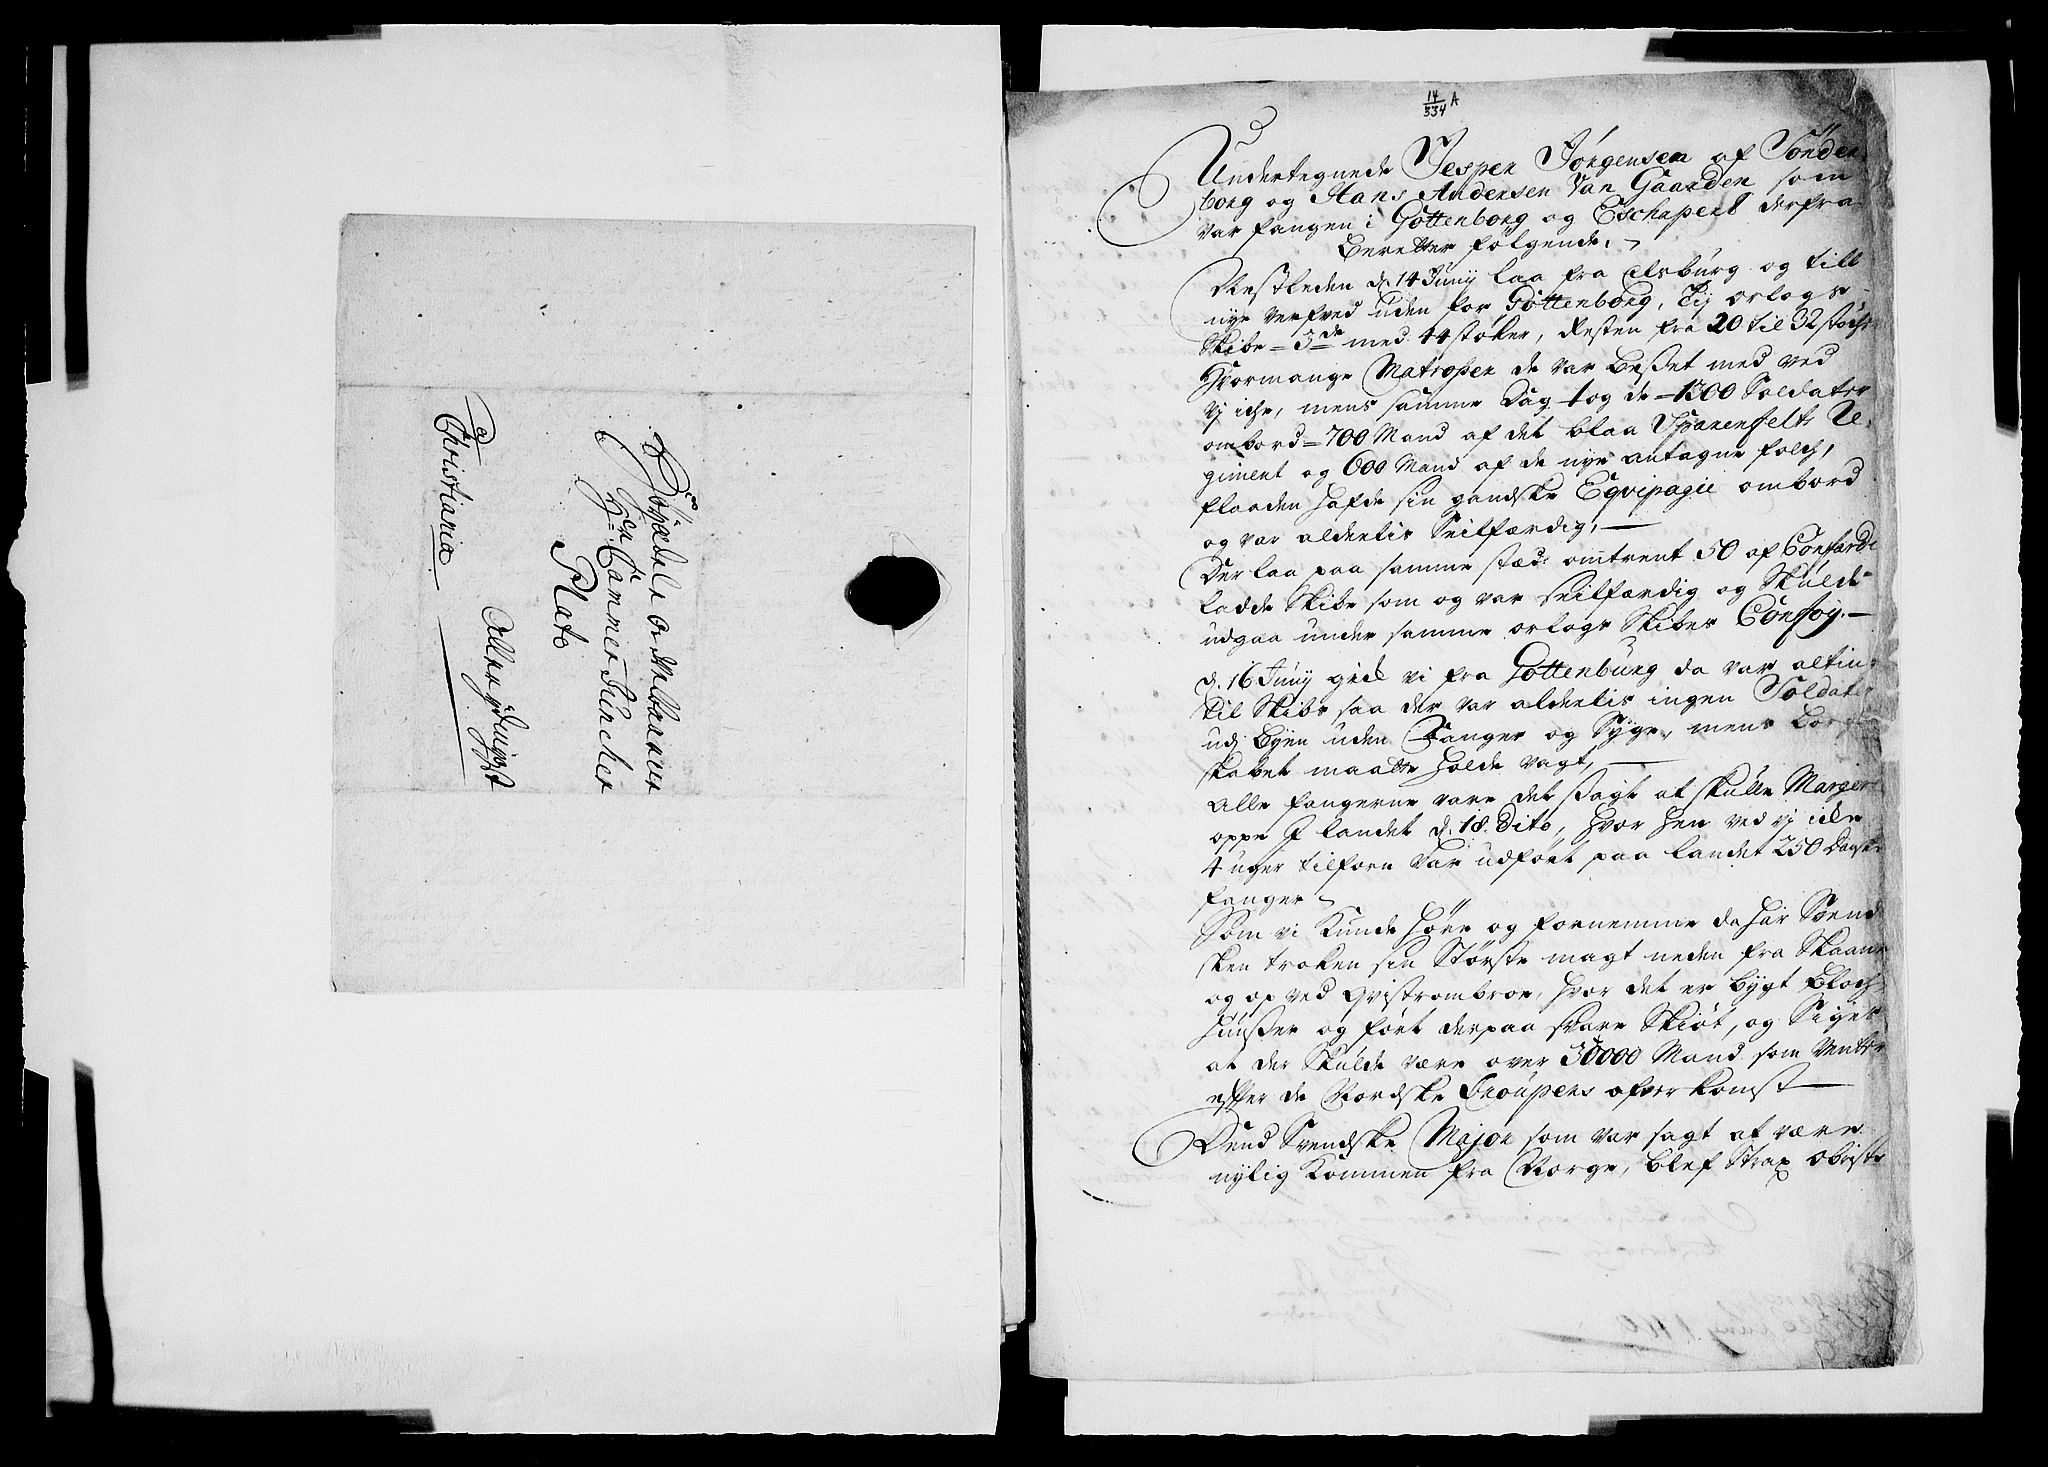 Höyædele och Velbaarne
Hr. Cammer-Juncher
Plato
a Christiania
Allerydmygst
14/334 A
Undertegnede Jesper Jörgensen af Sönder-
borg og Hans Andersen Van Gaarden som
var fangen i Gottenborg og Eschapert derfra
Beretter folgende,
Nestleden d. 14 Junij laa fra Elsburg og till
nye verfved uden for Gottenborg, Tij orlogs
Skibe = 3de med 44 støker, Resten fra 20 til 32 støch
Hvormange Matroser de var besset med ved
vj iche, mens samme Dag tog de = 1300 Soldater
ombord = 700 Mand af det blaa Sparenfelts Re-
giment og 600 Mand af de nye antagne folch,
flaaden hafde sin gandske Eqvipagie ombord
og var aldentis Seilfærdig,
Der laa paa samme stæd omtrent 50 af Coffardi
ladde Skibe som og var seilfærdig og Skulde
udgaa under samme orlogs Skibes Confoy.
d. 16 Junij gich vi fra Gottenburg da var alting
til Skibs saa der var aldentis ingen Soldater
udj Byen uden Fanger og Syge, mens borger
skabet maatte holde vagt,
Alle fangerne vare det sagt at skulle Margere
oppe J landet d. 18. Dito, hvor hen ved vj iche
4 uger tilforn var udfört paa landet 250 Danske
fanger
Som vi Kunde höre og fornemme da har Svend
sken troken sin Störste magt neden fra Skaane
og op ved Qvistrombroe, hvor det er bygt Bloch
huusser og fört derpaa svare Skiöt, og Siger
at der Skulde være over 30000 Mand som venter
efter de Nordske Troupers ofverkomst
Dend Svendske Major som var sagt at være
nylig Kommen fra Norge, blef Strax obriste